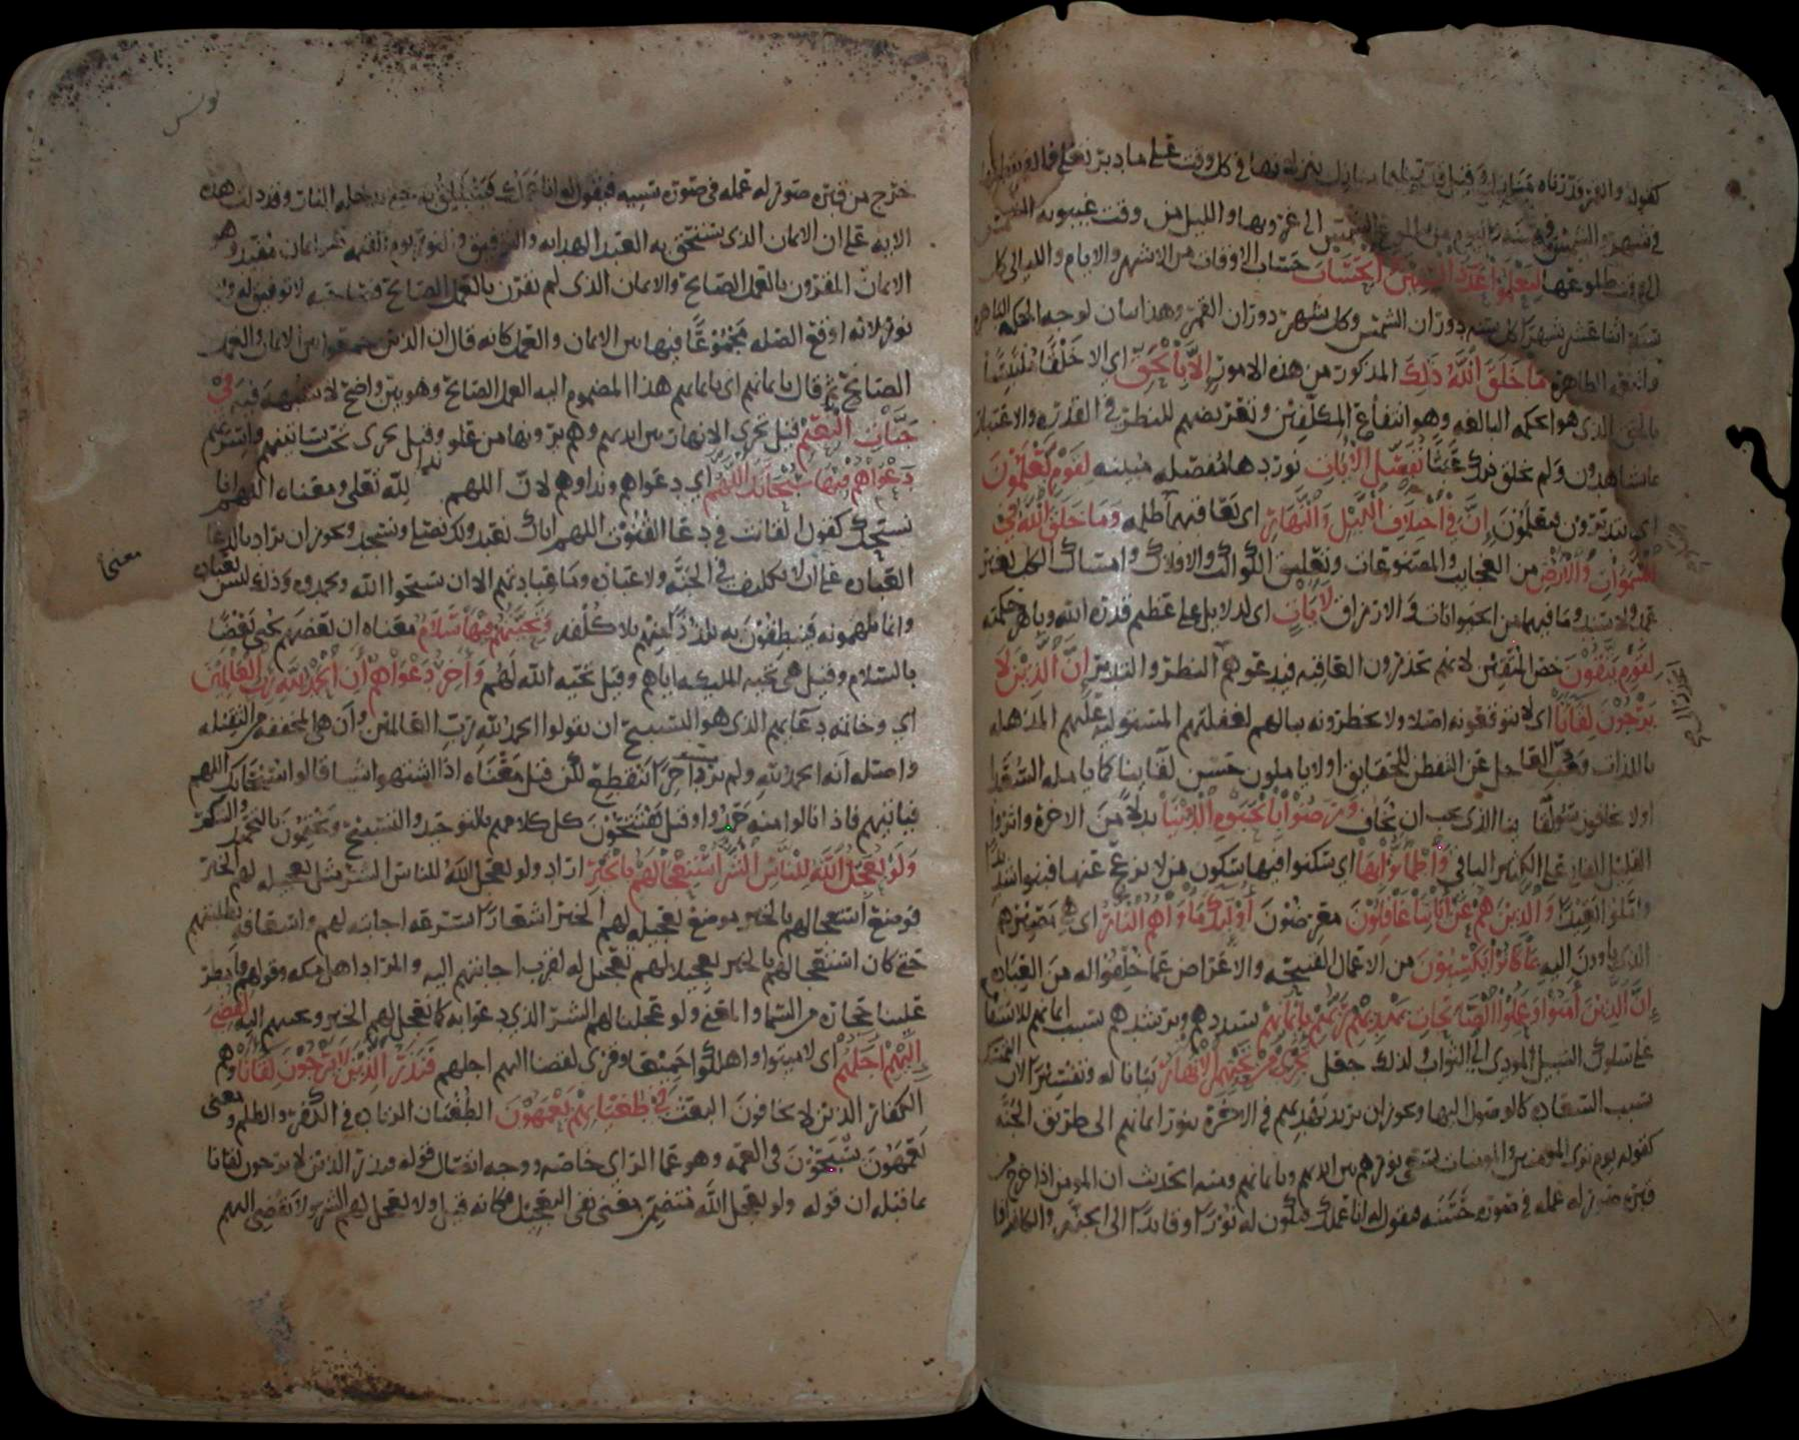 كقوله والقمر قدرناه منازل وقيل
في شهر والشمس في سنة اليوم من طلوع الشمس الى غروبها والليل من وقت غيبوبة الشمس
الى وقت طلوعها لتعلموا عدد السنين والحساب حساب الاوقات من الاشهر والايام والليالي كل
سنة اثنا عشر شهرا كل سنة دوران الشمس وكل شهر دوران القمر وهذا بيان لوجه الحكمة الباهرة
والنعمة الظاهرة ما خلق الله ذلك المذكور من هذه الامور الا بالحق اي الا خلقا ملتبسا
بالحق الذي هو الحكمة البالغة وهو انتفاع المكلفين وتعريضهم للنظر في القدرة والاعتبار
بما شاهدون ولم يخلق ذلك عبثا نفصل الايات نوردها مفصلة مبينة لقوم يعلمون
اي يتدبرون يعلمون إن في اختلاف الليل والنهار اي تعاقبهما وما خلق الله في
السموات والارض من العجايب والمصنوعات وتعليق الكواكب والافلاك وامساك الكل بغير
عمد ولا سند وما فيهما من الحيوانات والارزاق لايات اي لدلايل على عظيم قدرة الله وباهر حكمته
لقوم يتقون خص المتقين لانهم يحذرون العاقبة فيدعوهم النظر والتدبر إن الذين لا
يرجون لقانا اي لا يتوقعونه اصلا ولا يخطرونه ببالهم لغفلتهم المستولية عليهم المذهلة
باللذات وحب العاجل عن التفطن للحقايق اولا ياملون حسن لقاينا كما يامله السعدا
اولا يخافون سو لقاينا الذي يجب ان يخاف ورضوا بالحيوة الدنيا بدلا من الاخرة واثروا
القليل الفاني على الكثير الباقي واطمانوا بها اي سكنوا فيها سكون من لا يزعج عنها فبنوا شديدا
واملوا بعيدا والذين هم عن اياتنا غافلون معرضون اولئك ماواهم النار اي هي مصيرهم
الذي ياوون اليه بما كانوا يكسبون من الاعمال القبيحة والاعراض عما خلقوا له من العبادة
إن الذين امنوا وعملوا الصالحات يهديهم ربهم بايمانهم يسددهم ويرشدهم بسبب ايمانهم للاستقامة
على سلوك السبيل المودي الى الثواب لذلك جعل تجري من تحتهم الانهار بيانا له وتفسيرا لان التمسك
بسبب السعادة كالوصول اليها ويجوز ان يريد يهديهم في الاخرة بنور ايمانهم الى طريق الجنة
كقوله يوم ترى المومنين والمومنات يسعى نورهم بين ايديهم وبايمانهم ومنه الحديث ان المومن اذا خرج من
قبره صور له عمله في صورة حسنة فيقول له انا عملك فيكون له نورا وقايدا الى الجنة والكافر اذا
يونس
خرج من قبره صور له عمله في صورة سيئة فيقول له انا عملك فينطلق به حتى يدخله النار وقد دلت هذه
الاية على ان الايمان الذي يستحق به العبد الهداية والتوفيق والنور يوم القيمة هو ايمان مقيد وهو
الايمان المقرون بالعمل الصالح والايمان الذي لم يقرن بالعمل الصالح فصاحبه لا توفيق له ولا
نور لانه اوقع الصلة مجموعا فيها بين الايمان والعمل كانه قال ان الذين جمعوا بين الايمان والعمل
الصالح ثم قال بايمانهم اي بايمانهم هذا المضموم اليه العمل الصالح وهو بين واضح لا شبهة فيه في
جنات النعيم قيل تجري الانهار بين ايديهم وهم يرونها من علو وقيل تجري تحت بساتينهم واسرتهم
دعواهم فيها سبحانك اللهم اي دعواهم ونداوهم لان اللهم ندا لله تعلى ومعناه اللهم انا
نسبحك كقول القانت في دعا القنوت اللهم اياك نعبد ولك نصلي ونسجد ويجوز ان يراد بالدعا
العبادة على ان لا تكليف في الجنة ولا عبادة وما عبادتهم الا ان يسبحوا الله ويحمدوه وذلك ليس بعبادة
معنى
وانما يلهمونه فينطقون به تلذذا منهم بلا كلفة وتحيتهم فيها سلام معناه ان بعضهم يحيي بعضا
بالسلام وقيل هي تحية المليكة اياهم وقيل تحية الله لهم وآخر دعواهم ان الحمد لله رب العالمين
اي وخاتمة دعايهم الذي هو التسبيح ان يقولوا الحمد لله رب العالمين وان هي المخففة من الثقيلة
واصله انه الحمد لله ولم يرد آخرا ينقطع لكن قيل معناه اذا اشتهوا شيا قالوا سبحانك اللهم
فياتيهم فاذا نالوا منه حمدوا وقيل يفتتحون كل كلامهم بالتوحيد والتسبيح ويختمون بالتحميد والشكر
ولو يعجل الله للناس الشر استعجالهم بالخير اراد ولو يعجل الله للناس الشر مثل تعجيله لهم الخير
فوضع استعجالهم بالخير موضع تعجيله لهم الخير اشعارا بسرعة اجابته لهم واسعافه بطلبتهم
حتى كان استعجالهم بالخير تعجيلا لهم تعجيل له لقرب اجابتهم اليه والمراد اهل مكة وقولهم فامطر
علينا حجارة من السما والمعنى ولو عجلنا لهم الشر الذي دعوا به كما نعجل لهم الخير ونجيبهم اليه لقضي
إليهم اجلهم اي لاميتوا واهلكوا جميعا وقرئ لقضا اليهم اجلهم فنذر الذين لا يرجون لقانا وهم
الكفار الذين لا يخافون البعث في طغيانهم يعمهون الطغيان الزيادة في الكفر والظلم ومعنى
يعمهون يسبحون في العمه وهو عما الراي خاصة ووجه اتصال قوله فنذر الذين لا يرجون لقانا
بما قبله ان قوله ولو يعجل الله متضمن معنى نفي التعجيل فكانه قيل ولا نعجل لهم الشر ولا نقضي اليهم